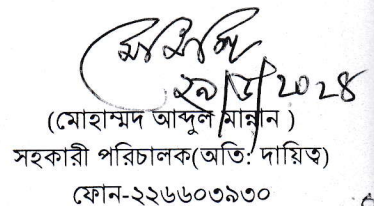 (মোহাম্মদ আব্দুল মান্নান )
সহকারী পরিচালক(অতি: দায়িত্ব)
ফোন-২২৬৬০৩৯৩০